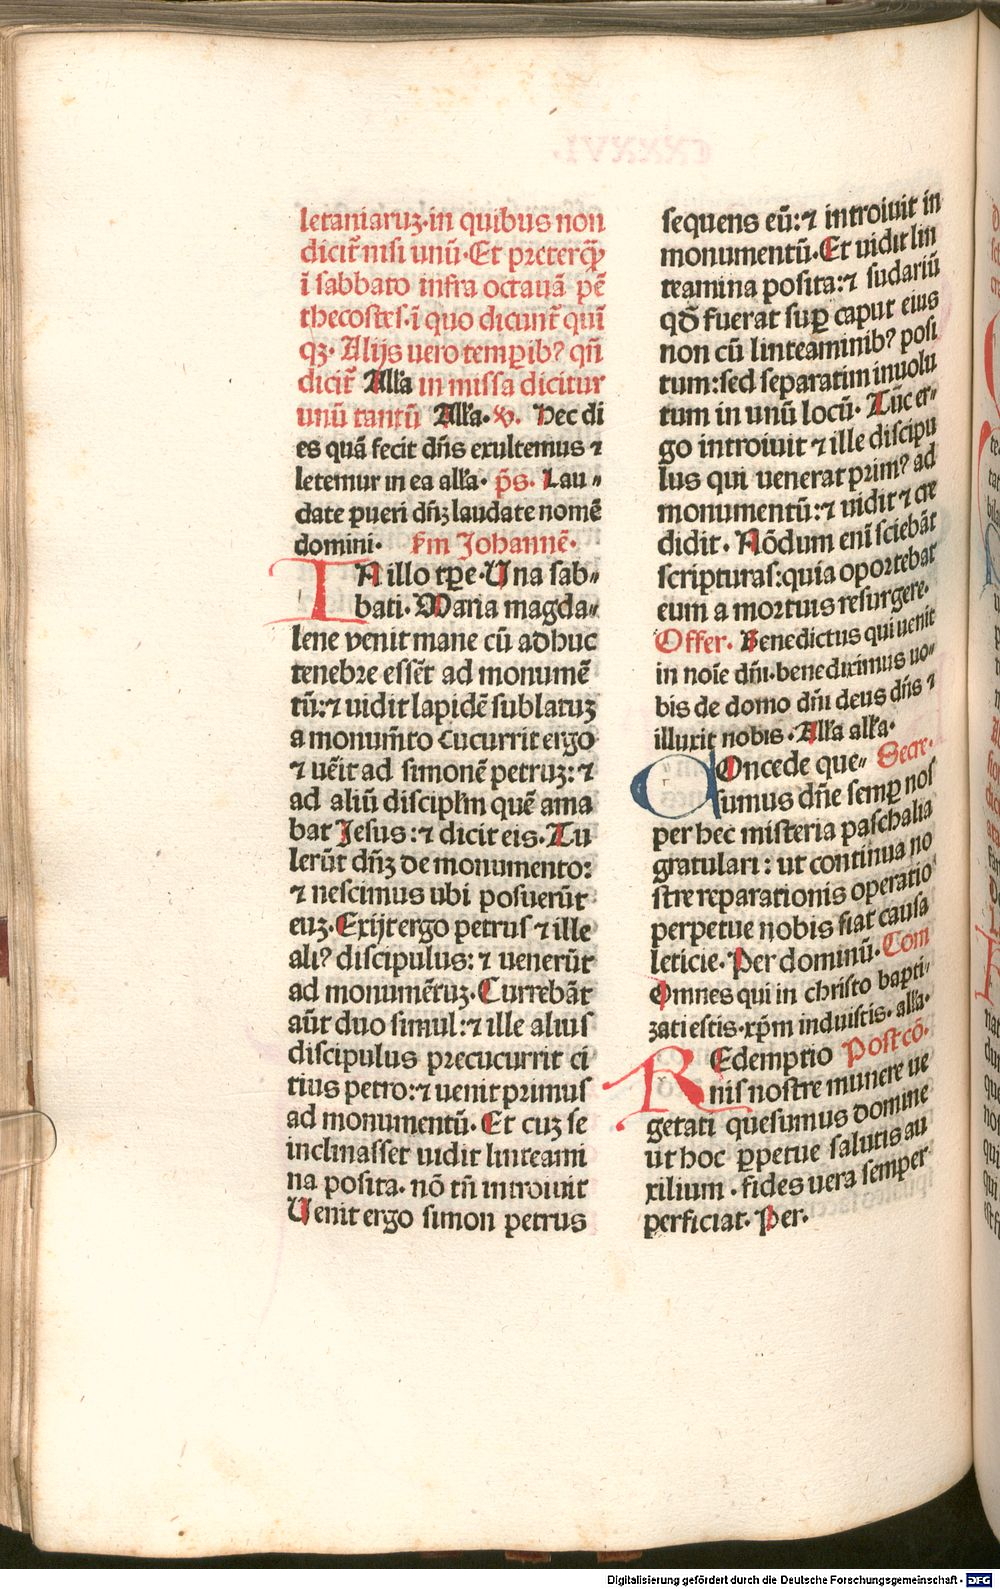 letaniaruꝫ·in quibus non
dicit̄ nisi unū·Et preterq̄ꝫ
ī sabbato infra octauā pē
thecostes·ī quo dicunt̄ quī
qꝫ· Alijs uero tempꝑib⁹ qn̄
dicit̄ All'a in missa dicitur
unū tantū All'a·℣. Hec di
es quā fecit dn̄s exultemus ⁊
letemur in ea all'a· p̄s. Lau⸗
date pueri dn̄ꝫ laudate nomē
domini· ẜm Johannē·
IN illo tꝑe·Una sab⸗
bati·Maria magda⸗
lene venit mane cū adhuc
tenebre essēt ad monumē
tū:⁊ uidit lapidē sublatuꝫ
a monum̄to Cucurrit ergo
⁊ uēit ad simonē petruꝫ:⁊
ad aliū discipl'm quē ama
bat Jesus:⁊ dicit eis·Tu
lerūt dn̄ꝫ de monumento:
⁊ nescimus ubi posuerūt
euꝫ·Exijt ergo petrus ⁊ ille
ali⁹ discipulus:⁊ uenerūt
ad monumētuꝫ·Currebāt
aūt duo simul:⁊ ille alius
discipulus precucurrit ci
tius petro:⁊ uenit primus
ad monumentū·Et cuꝫ se
inclinasset uidit linteami
na posita·nō tn̄ introiuit
Uenit ergo simon petrus
sequens eū:⁊ introiuit in
monumentū·Et uidit lin
teamina posita:⁊ sudariū
qd̄ fuerat suꝑ caput eius
non cū linteaminib⁹ posi
tum:sed separatim inuolu
tum in unū locū·Tūc er⸗
go introiuit ⁊ ille discipu
lus qui venerat prim⁹ ad
monumentū:⁊ uidit ⁊ cre
didit·Nōdum enī sciebāt
scripturas:quia oportebat
eum a mortuis resurgere·
Offer. Benedictus qui uenit
in noīe dn̄i·benediximus uo⸗
bis de domo dn̄i deus dn̄s ⁊
illuxit nobis·All'a all'a·
COncede que⸗ Secre·
sumus dn̄e semꝑ nos
per hec misteria paschalia
gratulari: ut continua no
stre reparationis operatio
perpetue nobis fiat causa
leticie·Per dominū·Com
Omnes qui in christo bapti⸗
zati estis·xp̄m induistis·all'a·
REdemptio Postcō·
nis nostre munere ue
getati quesumus domine
ut hoc ꝑpetue salutis au
xilium·fides uera semper
perficiat·Per·
Digitalisierung gefördert durch die Deutsche Forschungsgemeinschaft - DFG